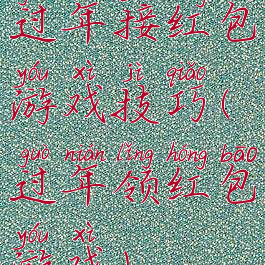 过年接红包
yóu xì jì qiǎo
游戏技巧(
guò nián lǐng hóng bāo
过年领红包
yóu xì
游戏)